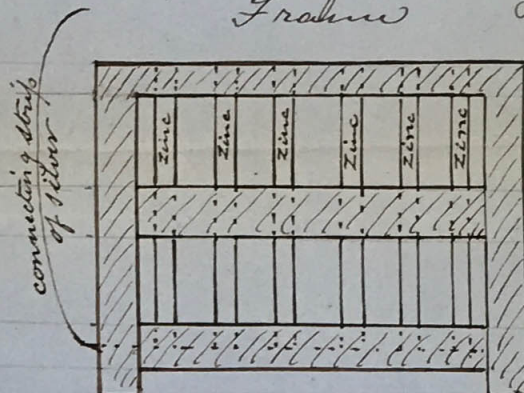 Frame
connecting strip
of silver
Zinc
Zinc
Zinc
Zinc
Zinc
Zinc